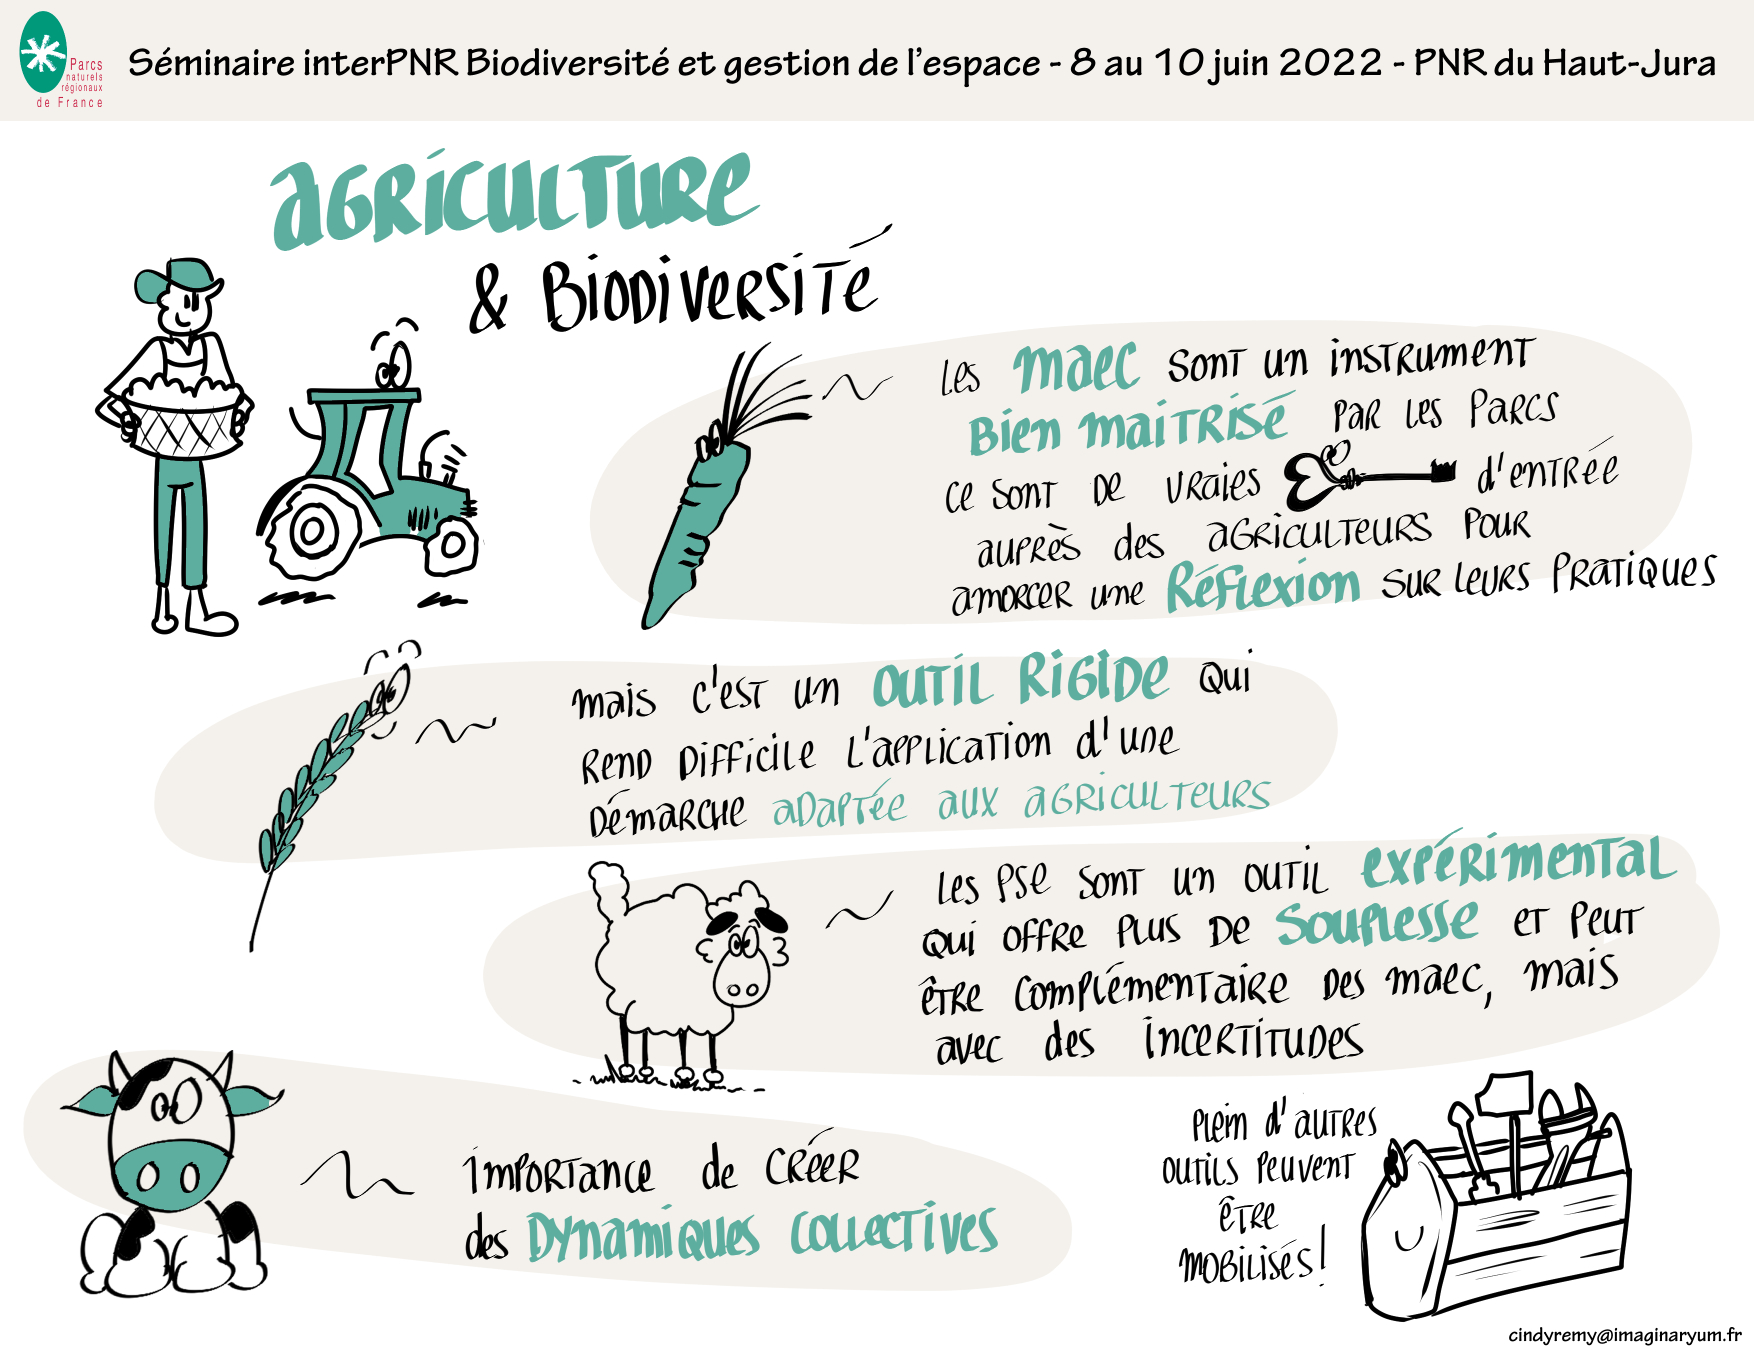 Parcs
naturels
régionaux
de France
Séminaire interPNR Biodiversité et gestion de l'espace - 8 au 10 juin 2022 - PNR du Haut-Jura
AGRICULTURE
& BIODIVERSITÉ
Les MAEC sont un instrument
bien maitrisé par les Parcs
ce sont de vraies d'entrée
auprès des agriculteurs pour
amorcer une réflexion sur leurs pratiques
mais c'est un outil rigide qui
rend difficile l'application d'une
démarche adaptée aux agriculteurs
Les PSE sont un outil expérimental
qui offre plus de souplesse et peut
être complémentaire des MAEC, mais
avec des incertitudes
Importance de créer
des dynamiques collectives
Plein d'autres
outils peuvent
être
mobilisés!
cindyremy@imaginaryum.fr